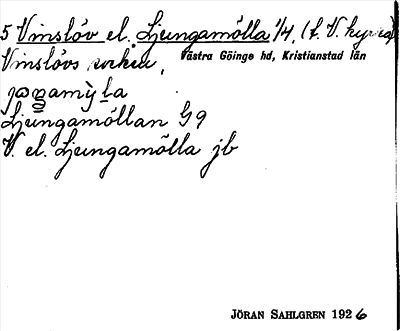 5 Vinslöv el. Ljungamölla 1/4, (f. V. kyrka)
Vinslövs socken, Västra Göinge hd, Kristianstad län
Ljungamöllan G9
V. el. Ljungamölla jb
JÖRAN SAHLGREN 1926